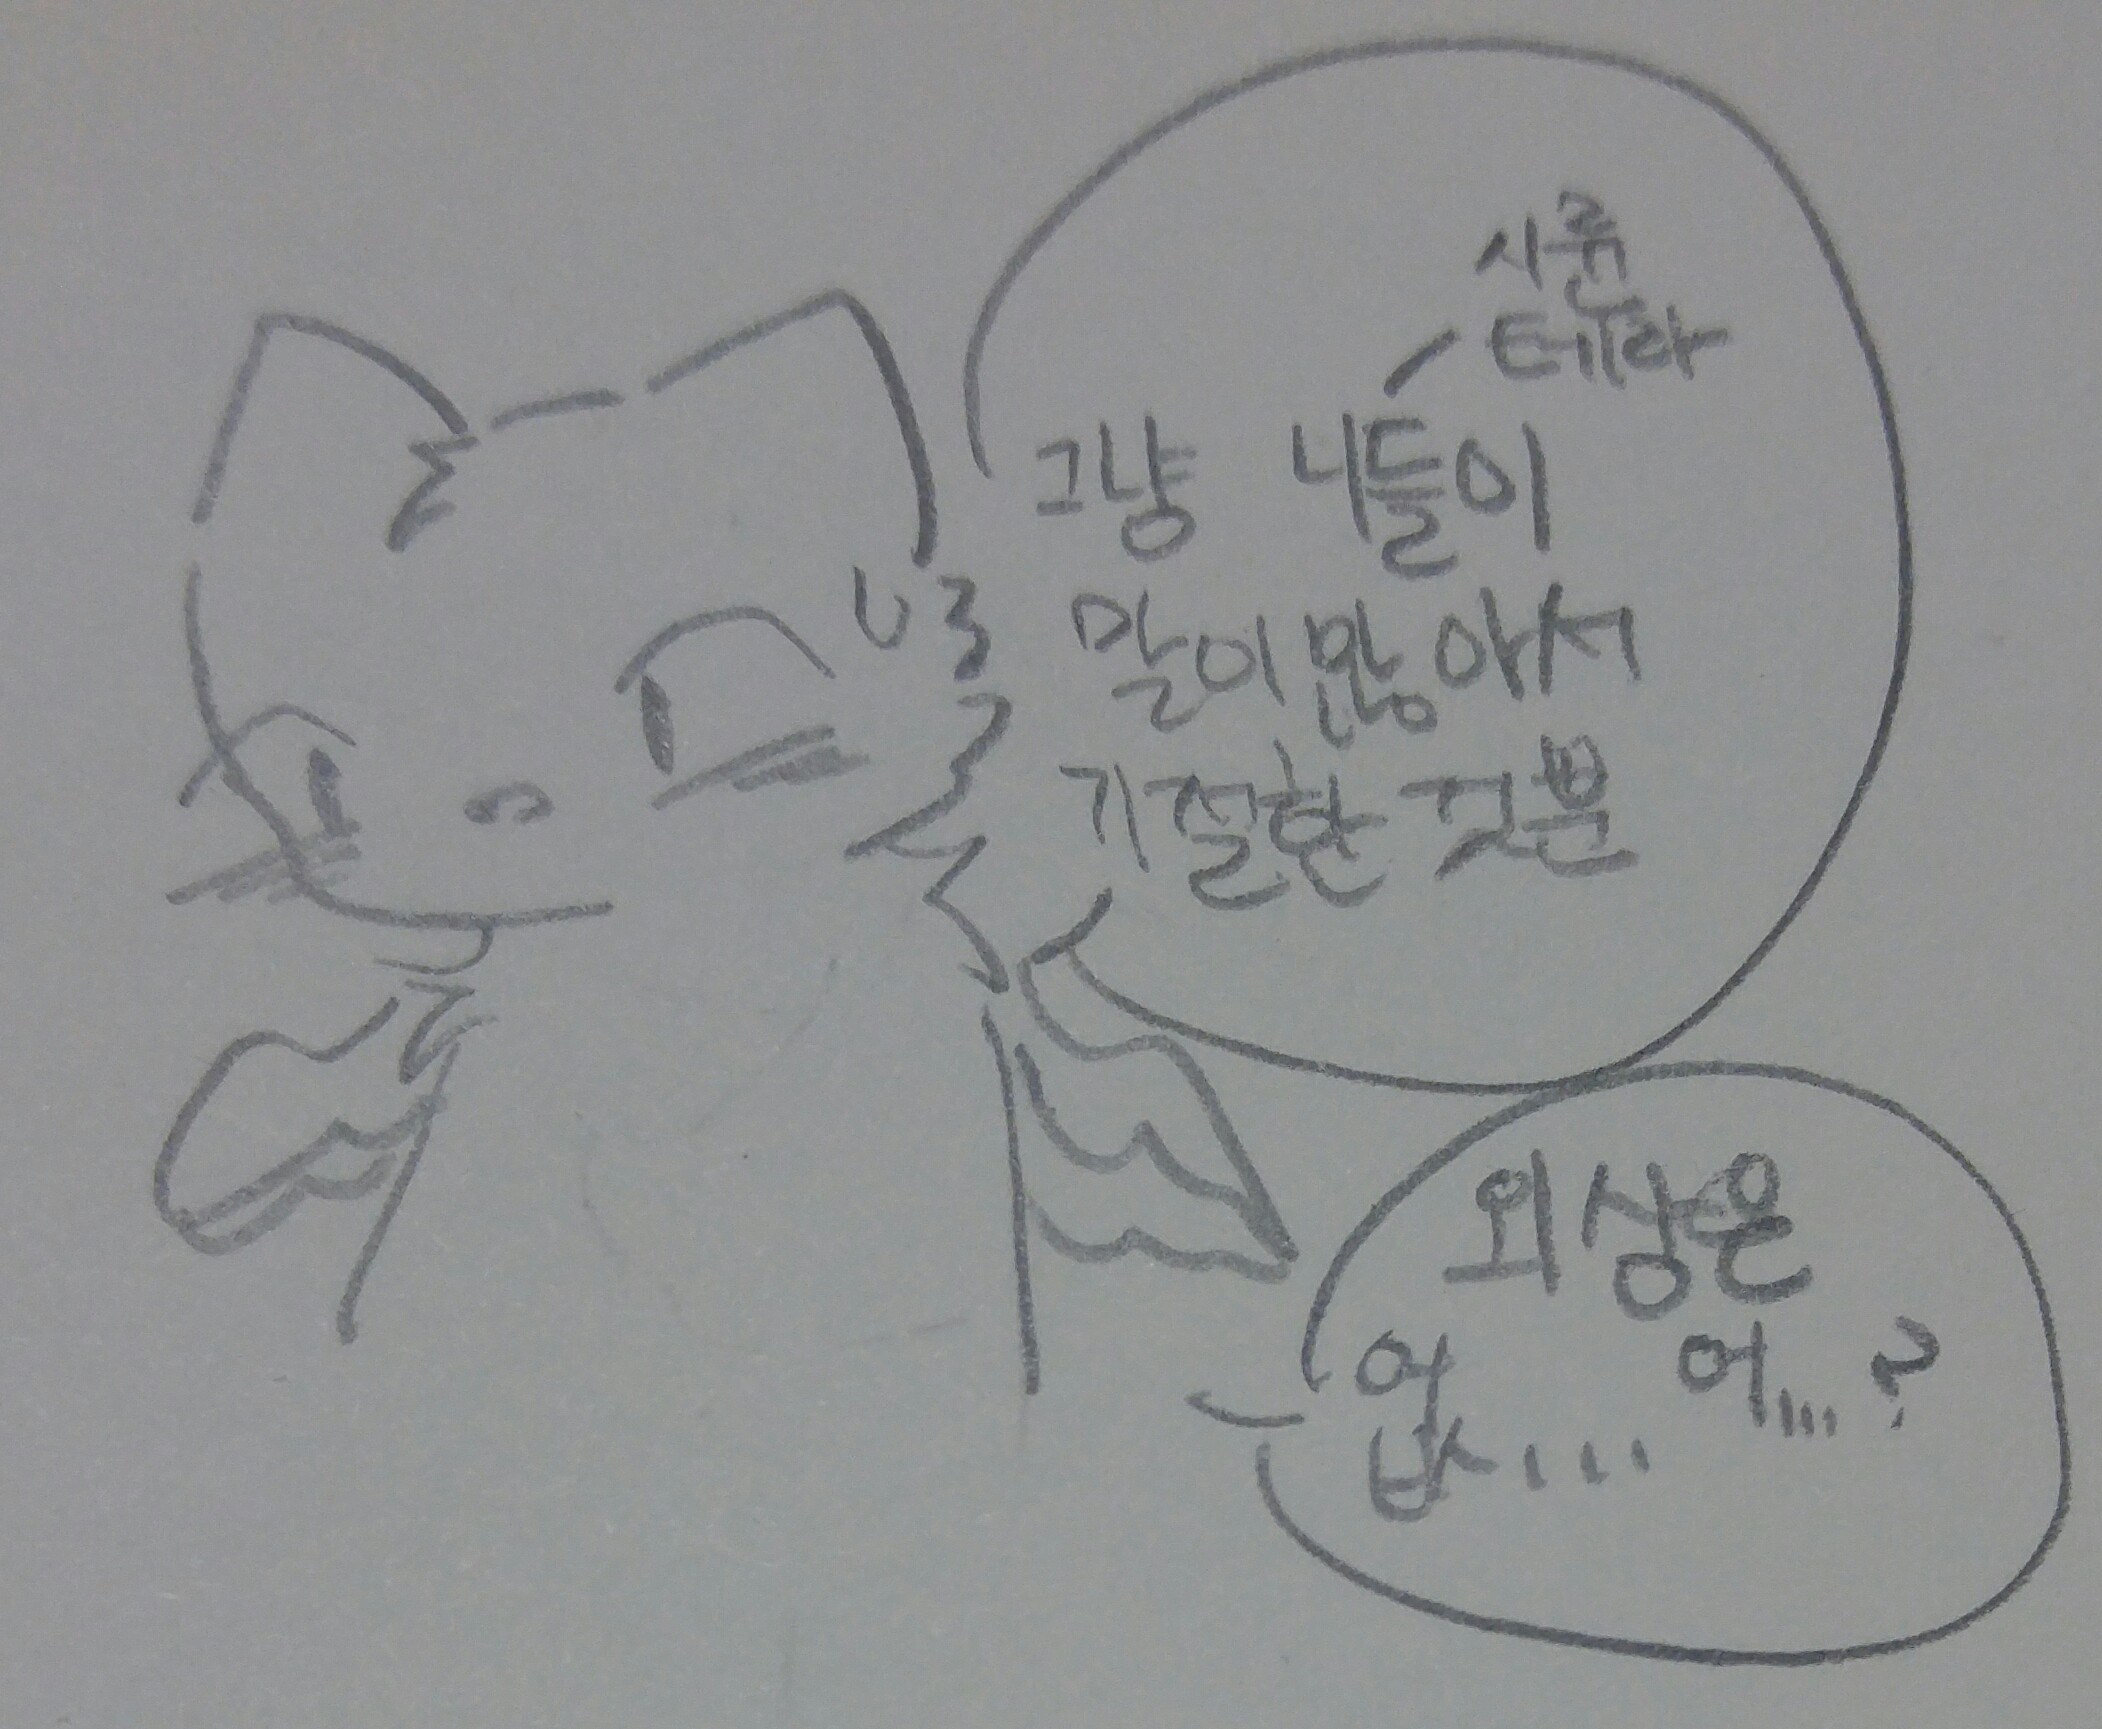 시룬
테라
그냥 니들이
말이 많아서
기절한 것뿐
외상은
없... 어...?